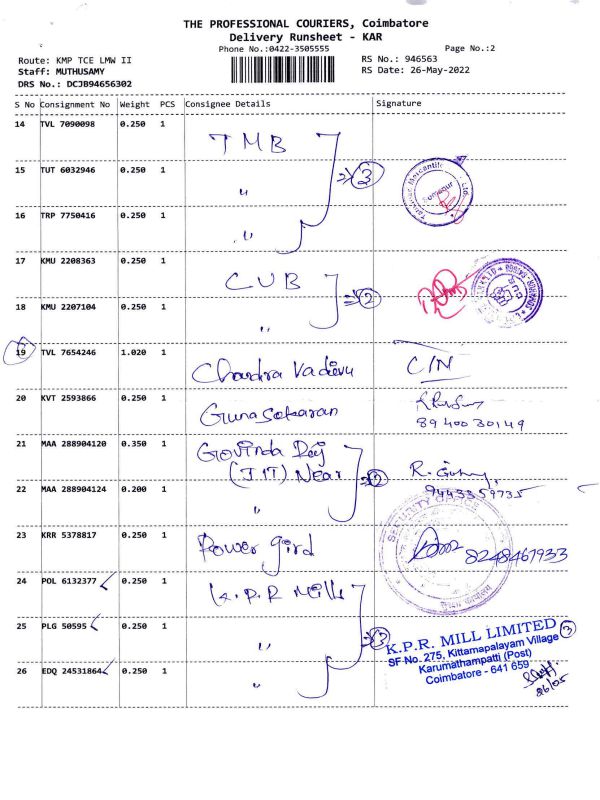 THE PROFESSIONAL COURIERS, Coimbatore
Delivery Runsheet - KAR
Phone No.:0422-3505555
Page No.:2
Route: KMP TCE LMW II
RS No.: 946563
Staff: MUTHUSAMY
RS Date: 26-May-2022
DRS No.: DCJB94656302
S No Consignment No Weight PCS Consignee Details Signature
14 TVL 7090098 0.250 1 TMB
15 TUT 6032946 0.250 1 " 3
16 TRP 7750416 0.250 1 "
17 KMU 2208363 0.250 1 CUB
2
18 KMU 2207104 0.250 1 "
19 TVL 7654246 1.020 1 Chandra Vadivu C/N
20 KVT 2593866 0.250 1 Gunasekaran
89400 30149
21 MAA 288904120 0.350 1 Govinda Raj
(J.IT) Near 2
22 MAA 288904124 0.200 1 " 9443359735
SECURITY OFFICE
23 KRR 5378817 0.250 1 Power gird 8248467933
24 POL 6132377 0.250 1 K.P.R Mills
25 PLG 50595 0.250 1 " 3
K.P.R. MILL LIMITED 3
SF No. 275, Kittamapalayam Village
Karumathampatti (Post)
Coimbatore - 641 659
26 EDQ 24531864 0.250 1 "
26/05